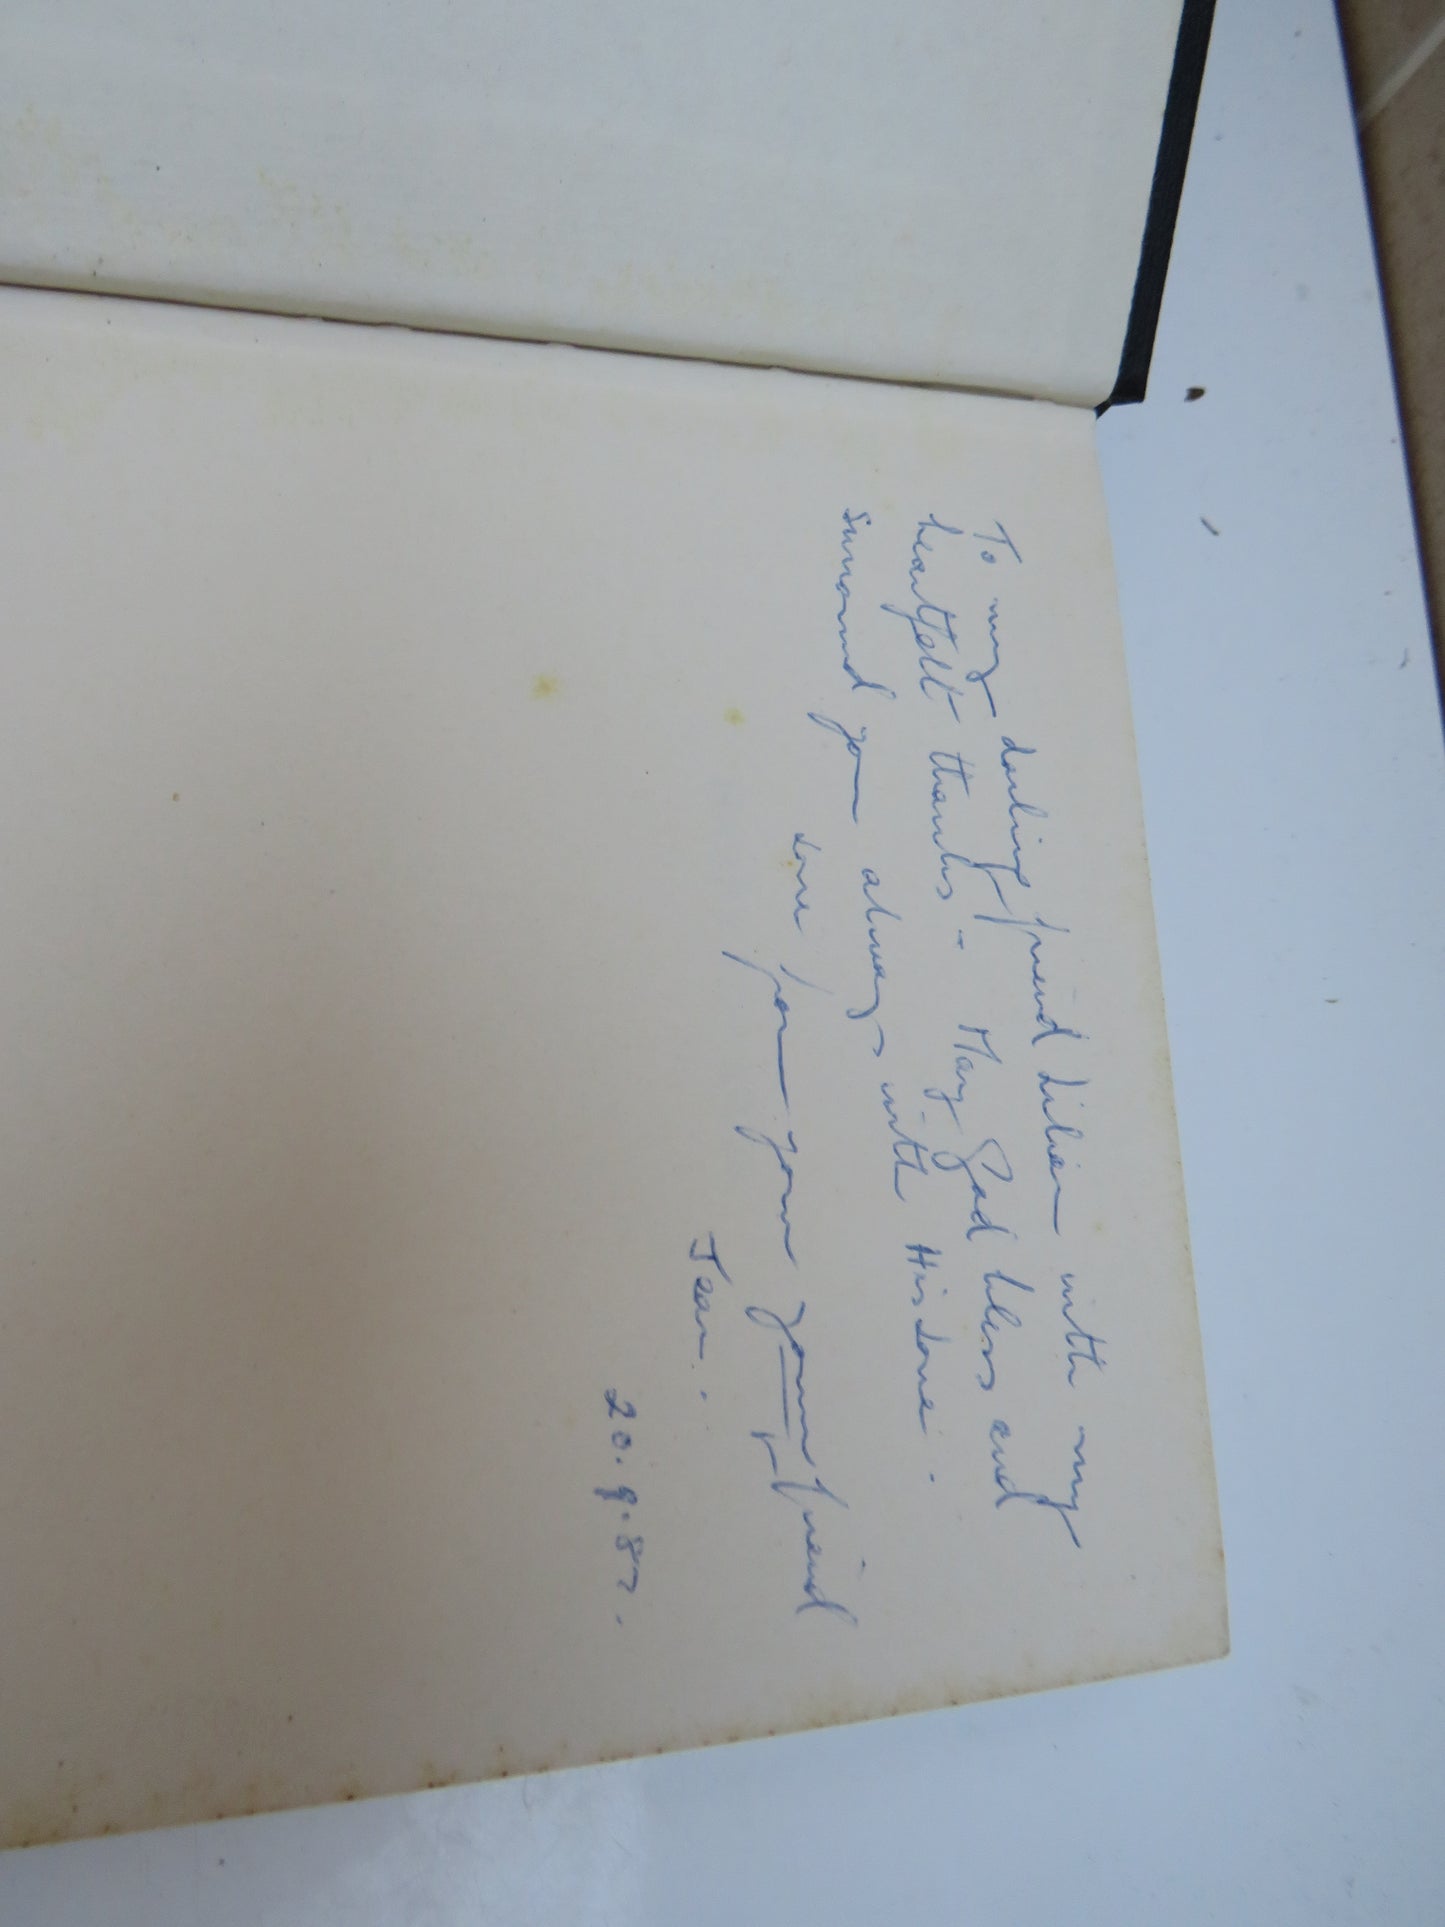 To my darling friend Lilian with my
heartfelt thanks - May God bless and
surround you always with His Love.
Love from your young friend
Jean.
20.9.87.